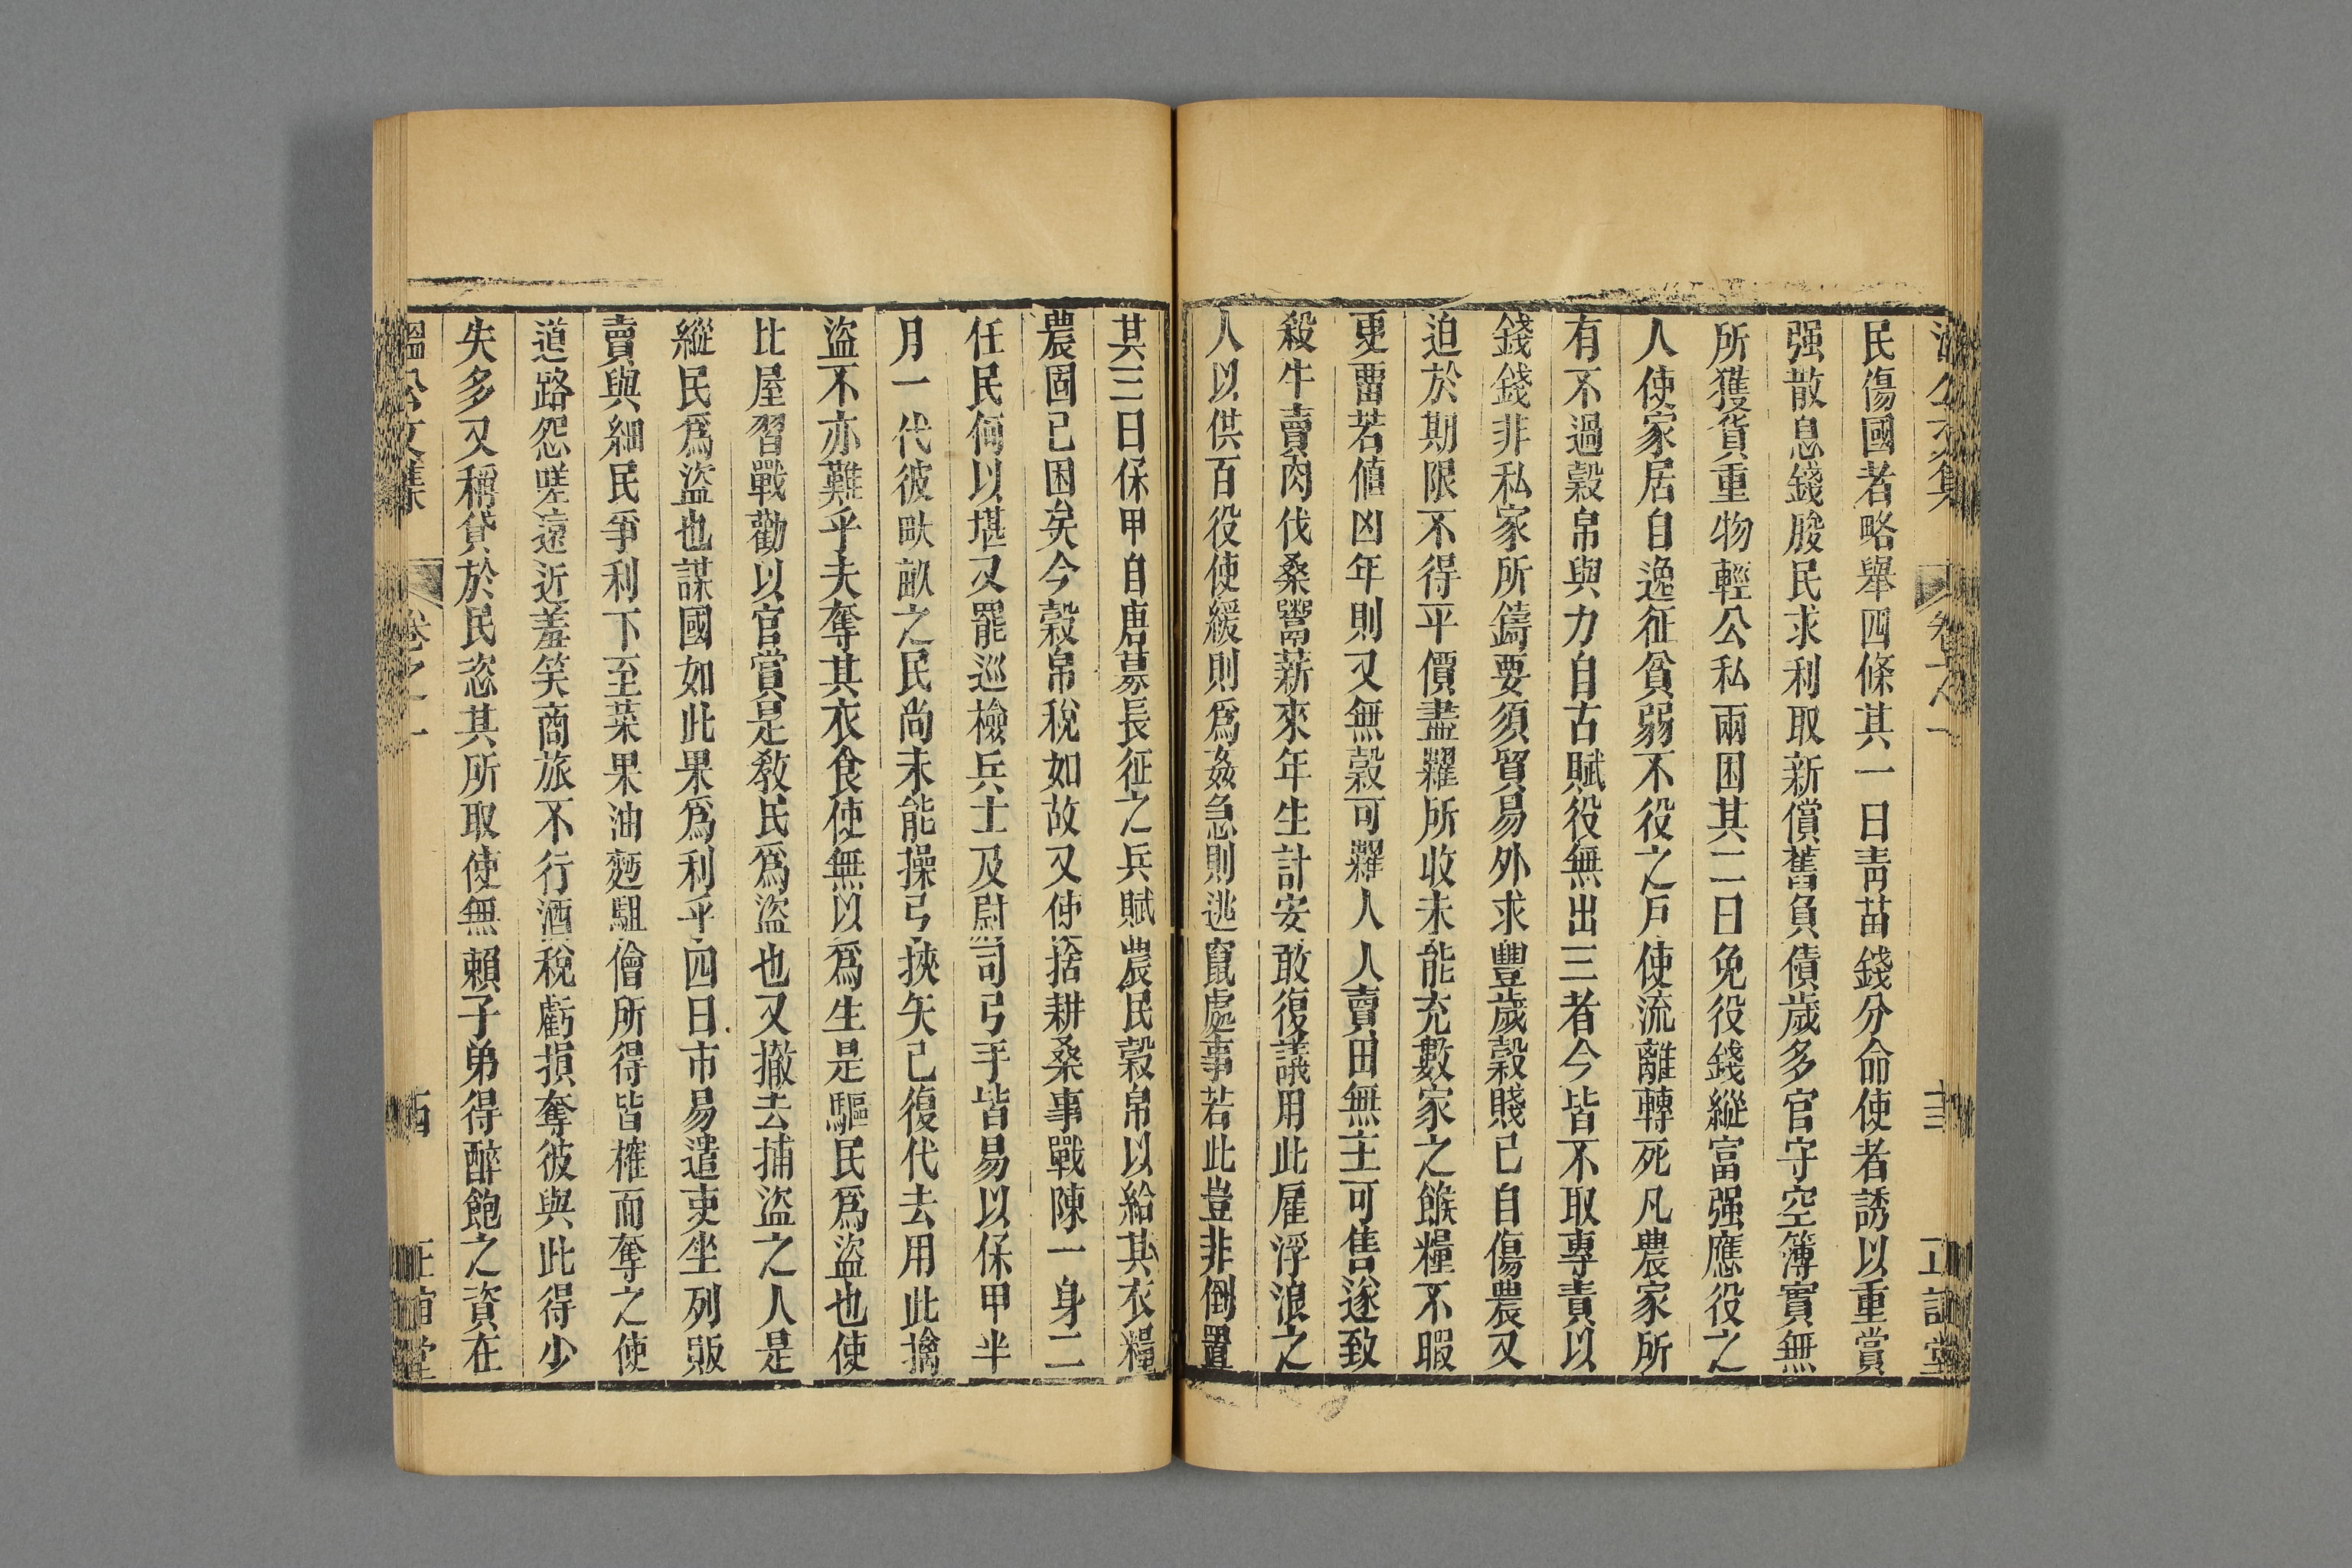 民傷國者略舉四條其一曰青苗錢分命使者誘以重賞
强散息錢朘民求利取新償舊負債歲多官守空簿實無
所獲貨重物輕公私兩困其二曰免役錢縱富强應役之
人使家居自逸征貧弱不役之戶使流離轉死凡農家所
有不過穀帛與力自古賦役無出三者今皆不取專責以
錢錢非私家所鑄要須貿易外求豐歲穀賤已自傷農又
迫於期限不得平價盡糶所收未能充數家之餱糧不暇
更畱若値凶年則又無穀可糶人人賣田無主可售遂致
殺牛賣肉伐桑鬻薪來年生計安敢復議用此雇浮浪之
人以供百役使緩則爲姦急則逃竄處事若此豈非倒置
其三曰保甲自唐募長征之兵賦農民穀帛以給其衣糧
農固已困矣今穀帛稅如故又使捨耕桑事戰陳一身二
任民何以堪又罷巡檢兵士及尉司弓手皆易以保甲半
月一代彼畎畝之民尚未能操弓挾矢已復代去用此擒
盜不亦難乎夫奪其衣食使無以爲生是驅民爲盜也使
比屋習戰勸以官賞是敎民爲盜也又撤去捕盜之人是
縱民爲盜也謀國如此果爲利乎四曰市易遣吏坐列販
賣與細民爭利下至菜果油麪駔儈所得皆榷而奪之使
道路怨嗟遠近羞笑商旅不行酒稅虧損奪彼與此得少
失多又稱貸於民恣其所取使無賴子弟得醉飽之資在
溫公文集 卷之一